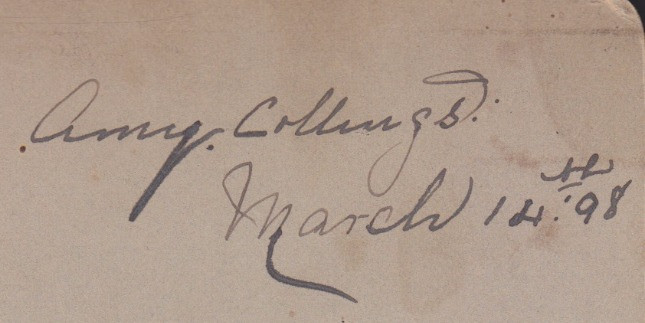 Amy. Collings.
March 14th. 98